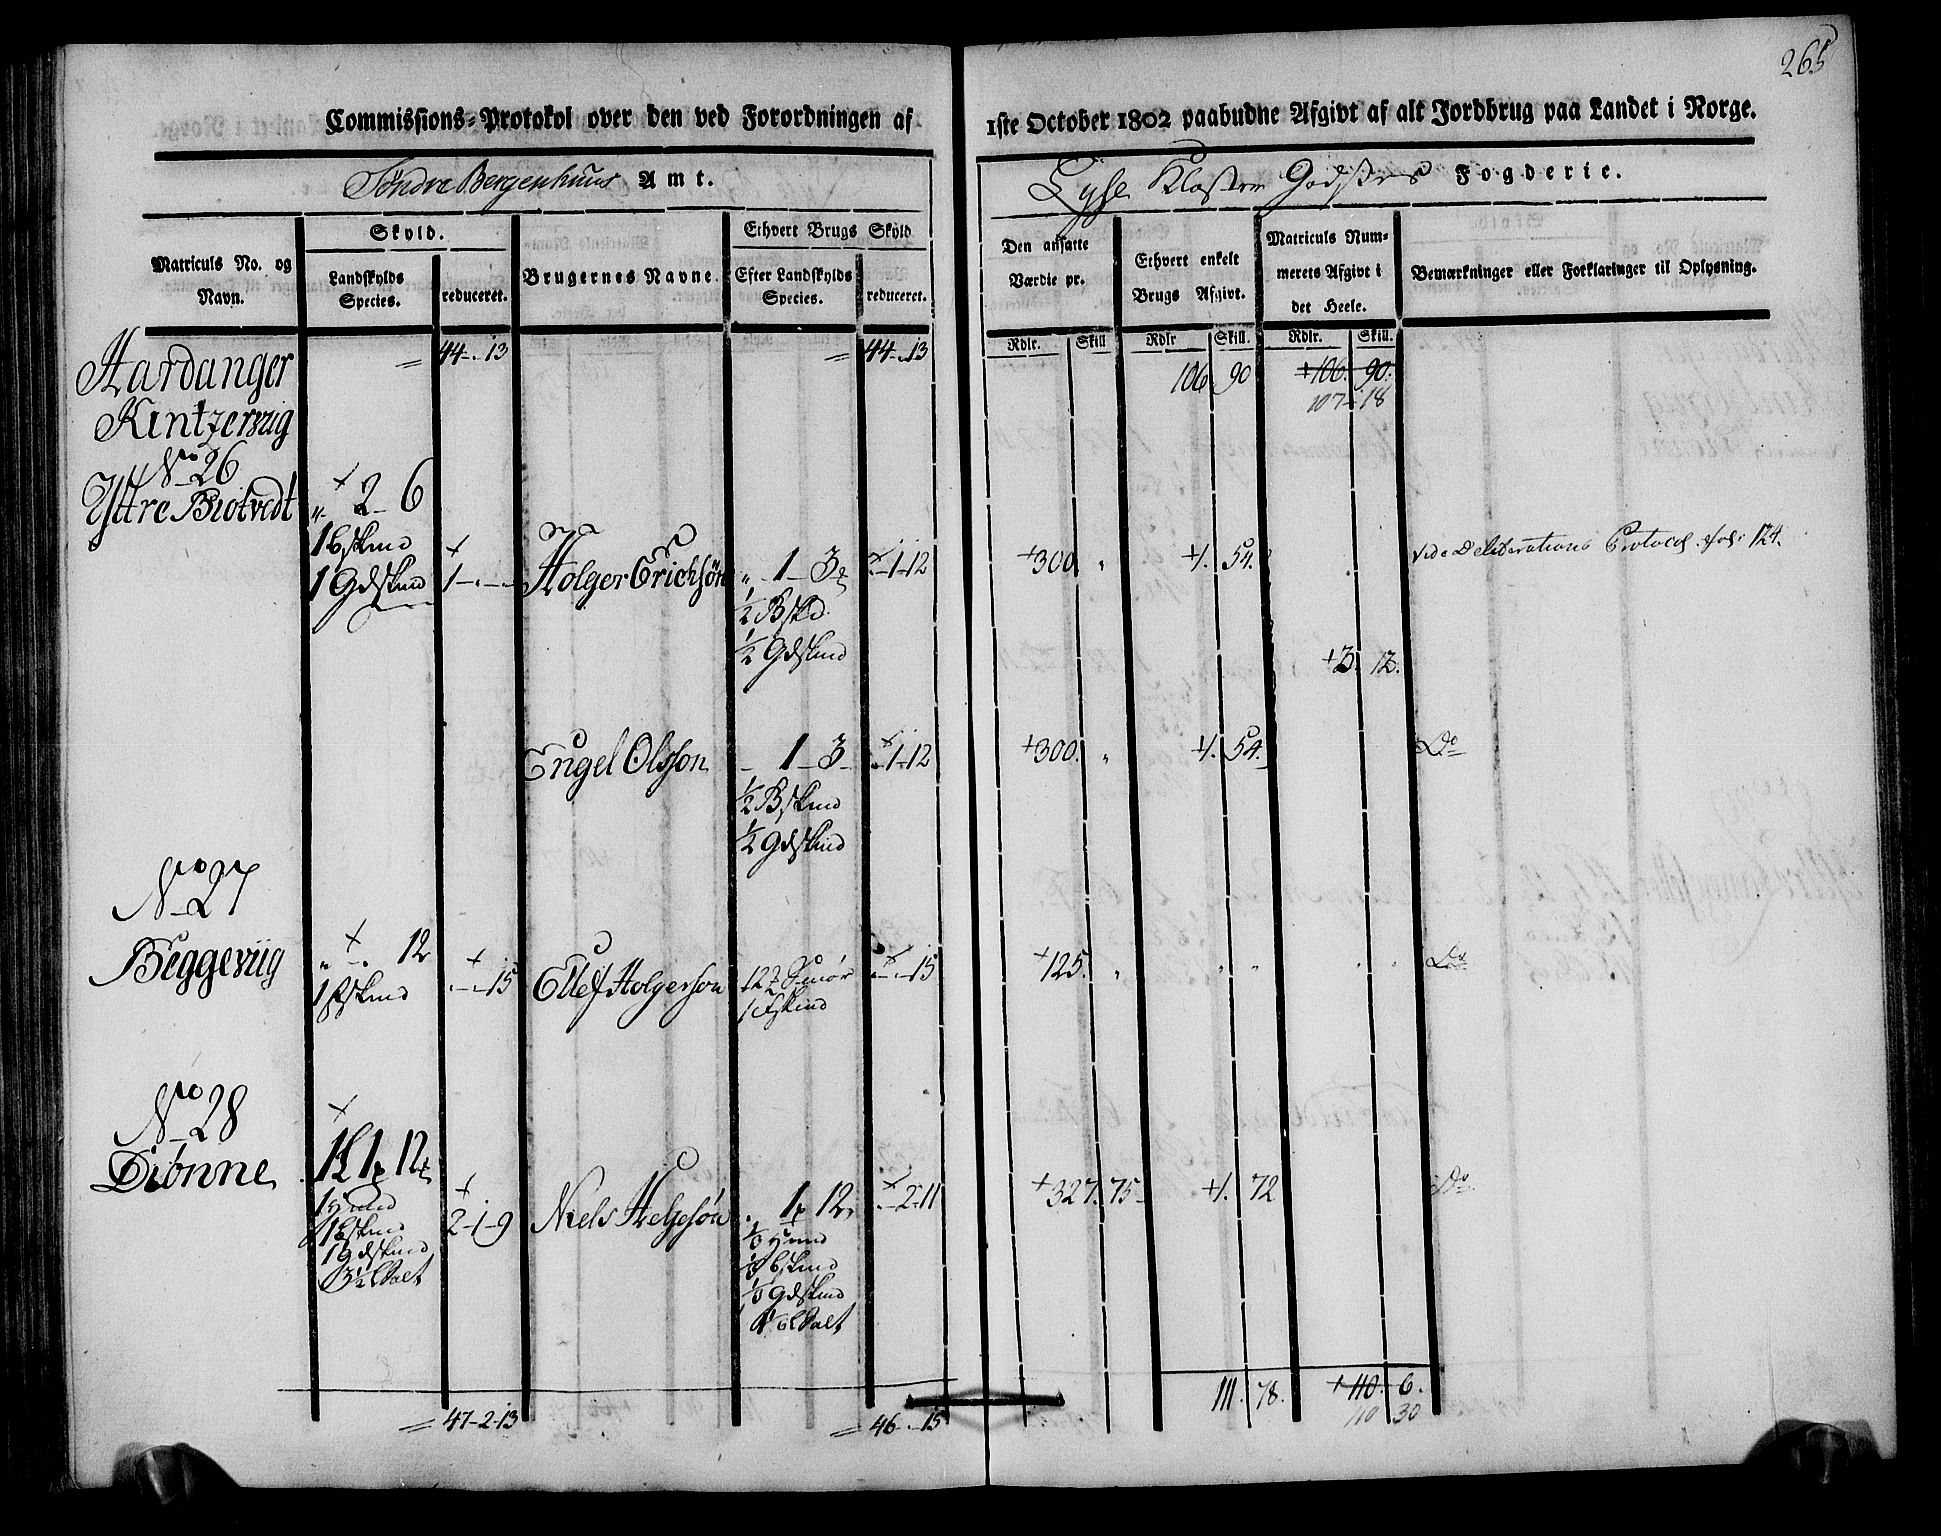 265
Commissions-Protokol over den ved Forordningen af 1ste October 1802 paabudne Afgivt af alt Jordbrug paa Landet i Norge.
Søndre Bergenhuus Amt.
Lyse Kloster Godsses Fogderie.
Matriculs No. og Navn.
Skyld.
Landskylds Species.
reduceret.
Brugernes Navne.
Ethvert Brugs Skyld
Efter Landskylds Species.
reduceret.
Den ansatte Værdie pr.
Ethvert enkelt Brugs Afgivt.
Matriculs Nummerets Afgivt i det Heele.
Bemærkninger eller Forklaringer til Oplysning.
Rdlr. Skill
Rdlr Skill.
Rdlr. Skill.
Hardanger
Kintzervig
= 44 - . 13
= 44 - . 13
106 90
+106. 90.
107 - 18
No 26
Yttre Biotvedt
+
" 2 - 6
1 Bskind
1 Gdskind
+
1 - . -
Holger Erichsøn
" - 1 - 3
½ Bskd
½ Gdskind
+ - 1 - 12
+300 "
+1. 54.
vide Deliberations Protocol fol: 124.
+3. 12.
Engel Olsson
- 1 - 3 -
½ Bskind
½ Gdskind
+ - 1 - 12
+300. "
+1. 54.
Do
No 27
Beggeviig
+
" - . 12
1 Bskind
+
. - . - 15
Ellef Holgerson
12 Smør
1 skind
+ - . - 15
+125. "
" "
Do
No 28
Diønne
+
1 12
1 Hud
1 Bskind
1 Gdskind
3½ Salt
+
2 - 1 - 9
Niels Helgesøn
. 1 12
Hud
Bskind
Gdskind
Salt
+ . - 2 - 11
+327. 75 -
+1. 72
Do
= 47 - 2 - 13
= 46 - . 15
111. 78.
+110. 6.
110 30